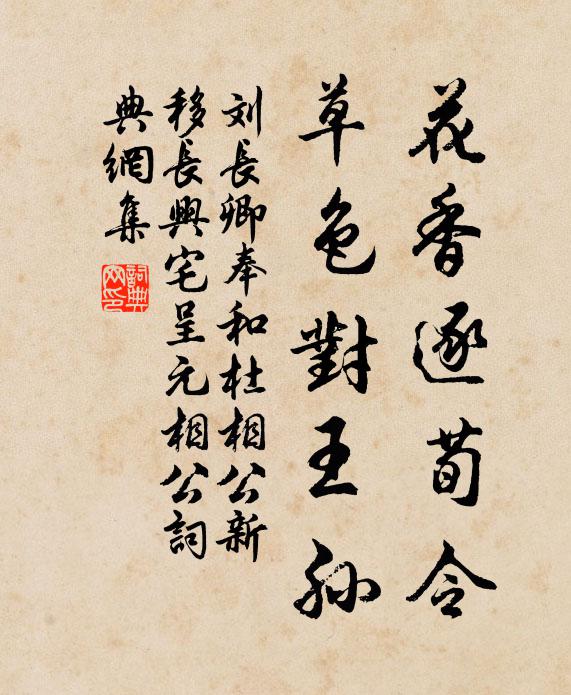 花香逐荀令
草色對王孫
刘長卿奉和杜相公新
移長興宅呈元相公詞
典網集
詞典
网印